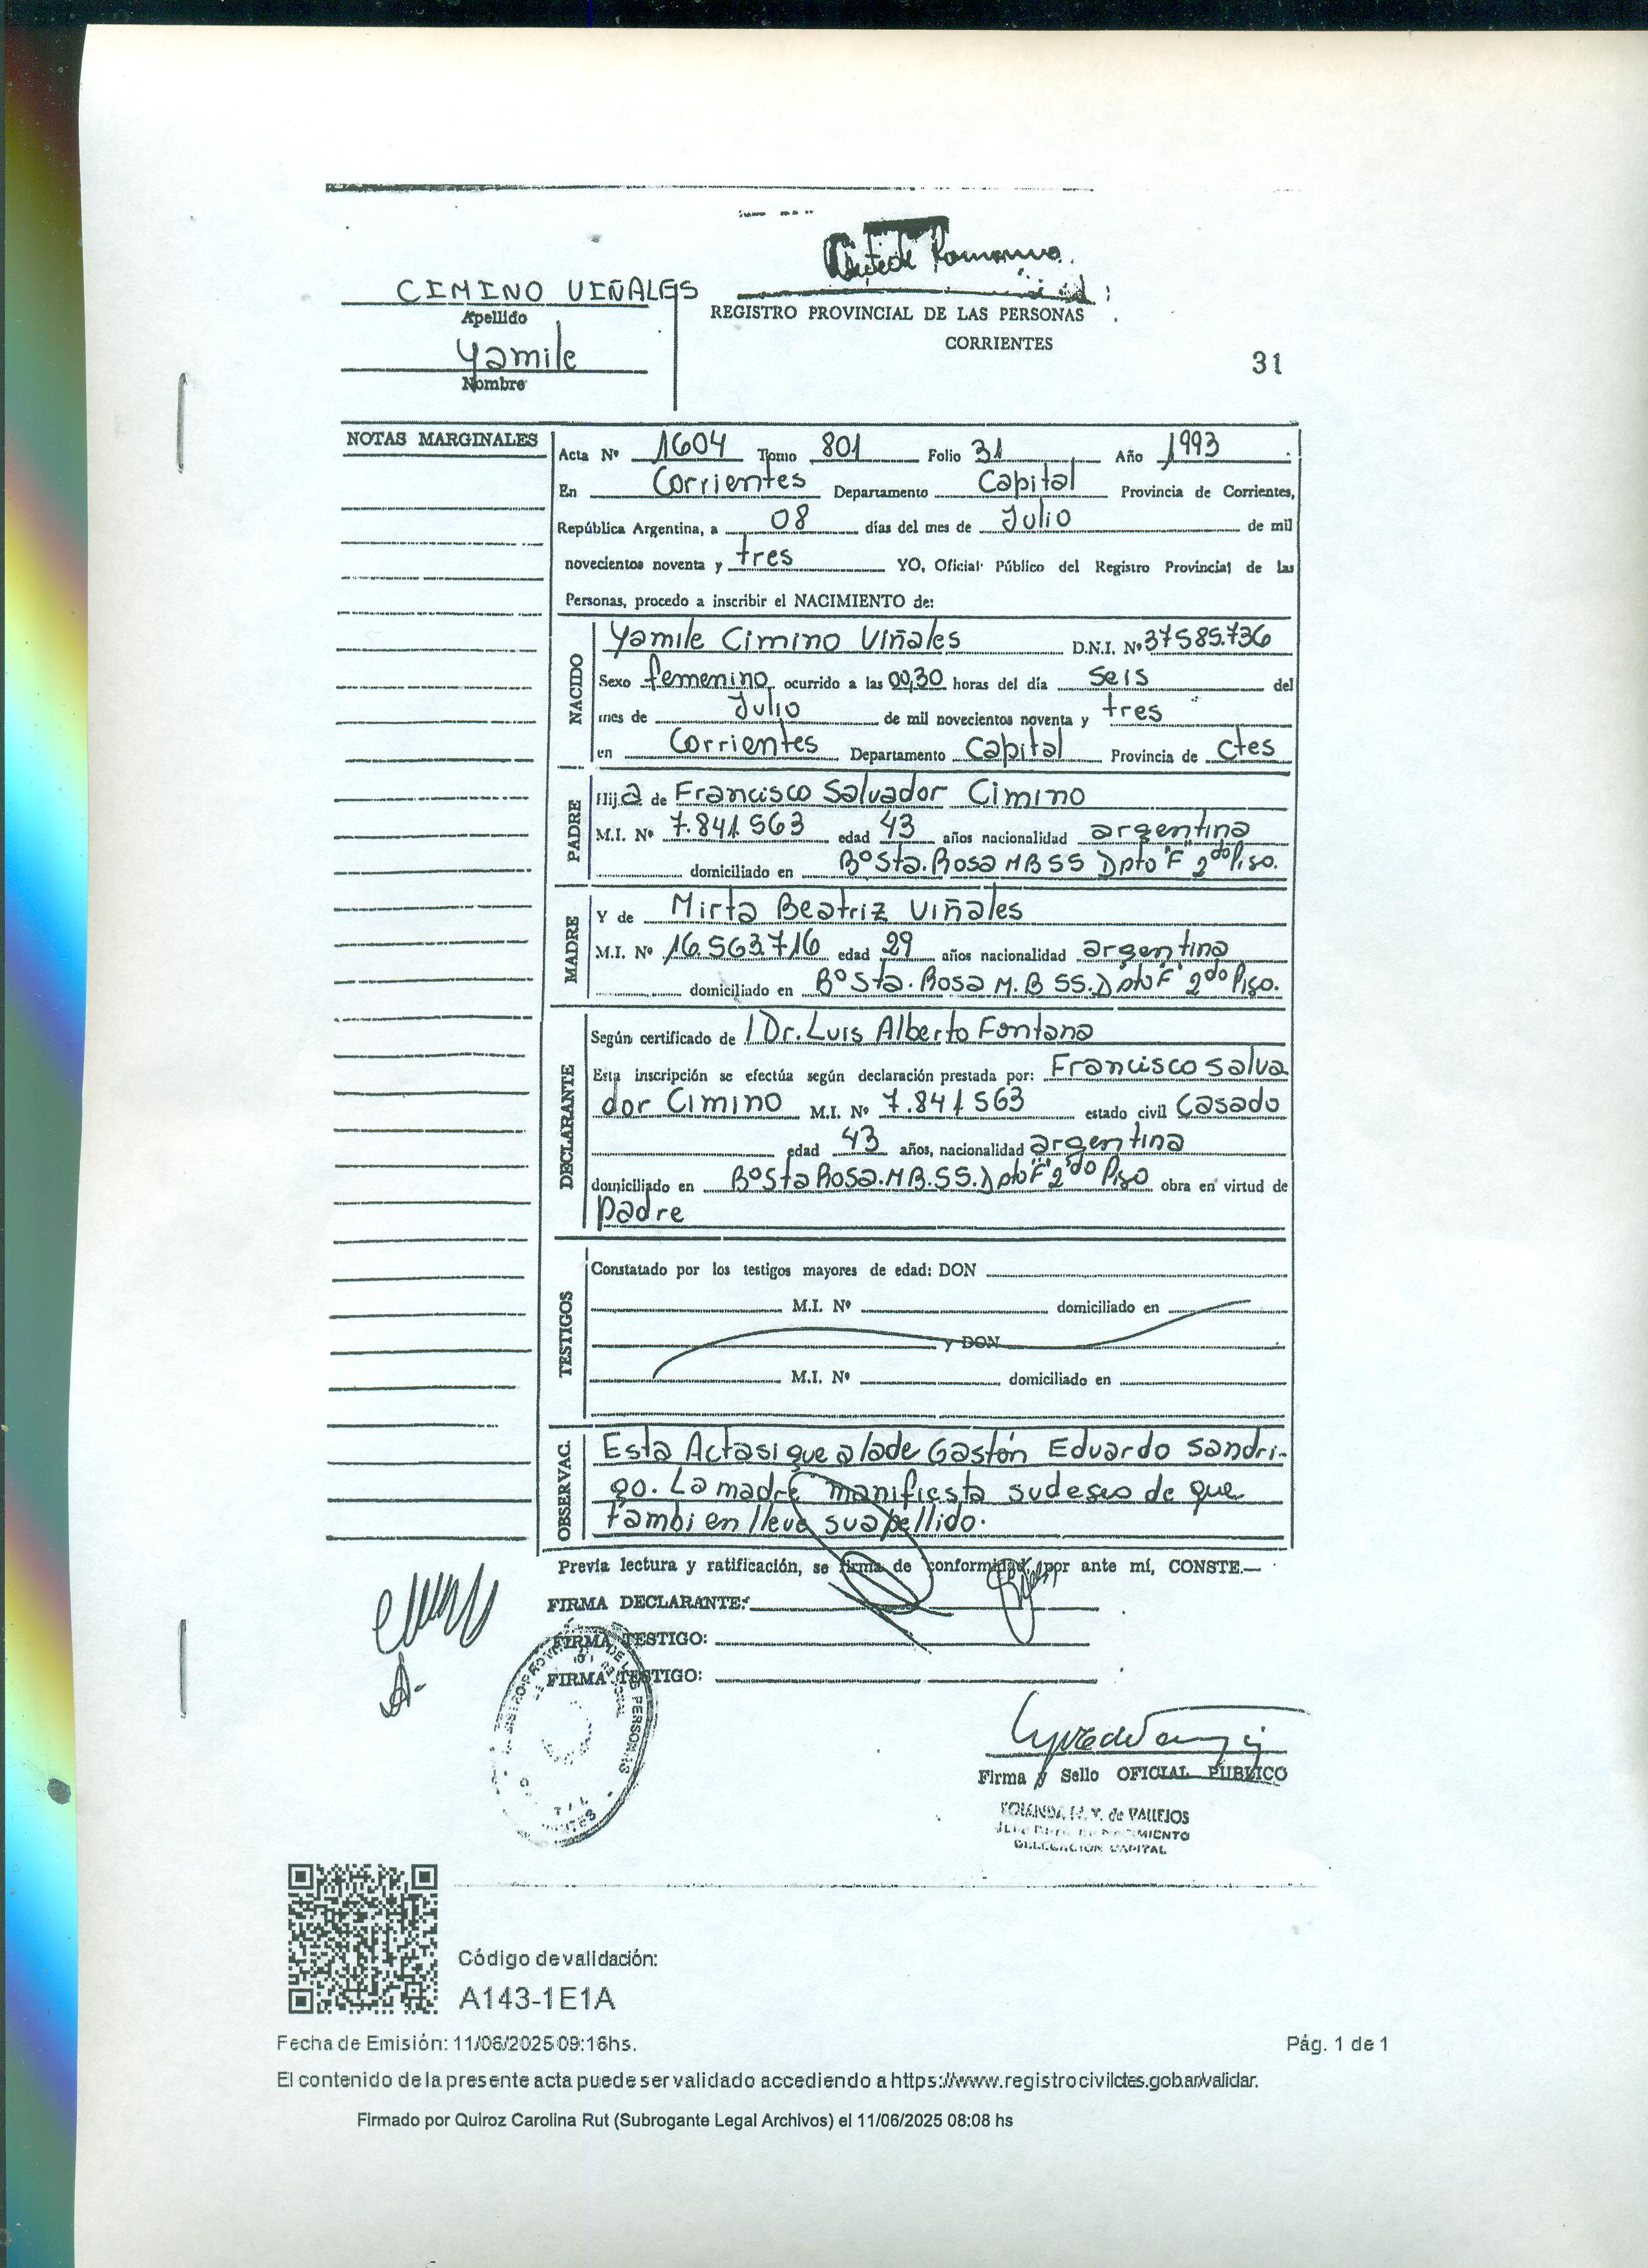 CIMINO VIÑALES
Apellido
Yamile
Nombre
REGISTRO PROVINCIAL DE LAS PERSONAS
CORRIENTES
31
NOTAS MARGINALES
Acta Nº 1604 Tomo 801 Folio 31 Año 1993
En Corrientes Departamento Capital Provincia de Corrientes,
República Argentina, a 08 días del mes de Julio de mil
novecientos noventa y tres YO, Oficial Público del Registro Provincial de las
Personas, procedo a inscribir el NACIMIENTO de:
NACIDO
Yamile Cimino Viñales D.N.I. Nº 37585.736
Sexo femenino ocurrido a las 00,30 horas del día seis del
mes de Julio de mil novecientos noventa y tres
en Corrientes Departamento Capital Provincia de Ctes
PADRE
Hija de Francisco Salvador Cimino
M.I. Nº 7.841.563 edad 43 años nacionalidad argentina
domiciliado en Bº Sta. Rosa M B SS Dpto "F" 2do Piso.
MADRE
Y de Mirta Beatriz Viñales
M.I. Nº 16.563.716 edad 29 años nacionalidad argentina
domiciliado en Bº Sta. Rosa M. B SS. Dpto "F" 2do Piso.
DECLARANTE
Según certificado de l Dr. Luis Alberto Fontana
Esta inscripción se efectúa según declaración prestada por: Francisco Salva
dor Cimino M.I. Nº 7.841.563 estado civil Casado
edad 43 años, nacionalidad argentina
domiciliado en Bº Sta Rosa. M B. SS. Dpto "F" 2do Piso obra en virtud de
Padre
TESTIGOS
Constatado por los testigos mayores de edad: DON
M.I. Nº domiciliado en
y DON
M.I. Nº domiciliado en
OBSERVAC.
Esta Acta sigue a la de Gastón Eduardo Sandri-
go. La madre manifiesta su deseo de que
tambien lleve su apellido.
Previa lectura y ratificación, se firma de conformidad, por ante mí, CONSTE.—
FIRMA DECLARANTE:
FIRMA TESTIGO:
FIRMA TESTIGO:
Firma y Sello OFICIAL PUBLICO
YOLANDA M. V. de VALLEJOS
DELEGACION CAPITAL
Código de validación:
A143-1E1A
Fecha de Emisión: 11/06/2025 09:16hs.
Pág. 1 de 1
El contenido de la presente acta puede ser validado accediendo a https://www.registrocivilctes.gob.ar/validar.
Firmado por Quiroz Carolina Rut (Subrogante Legal Archivos) el 11/06/2025 08:08 hs